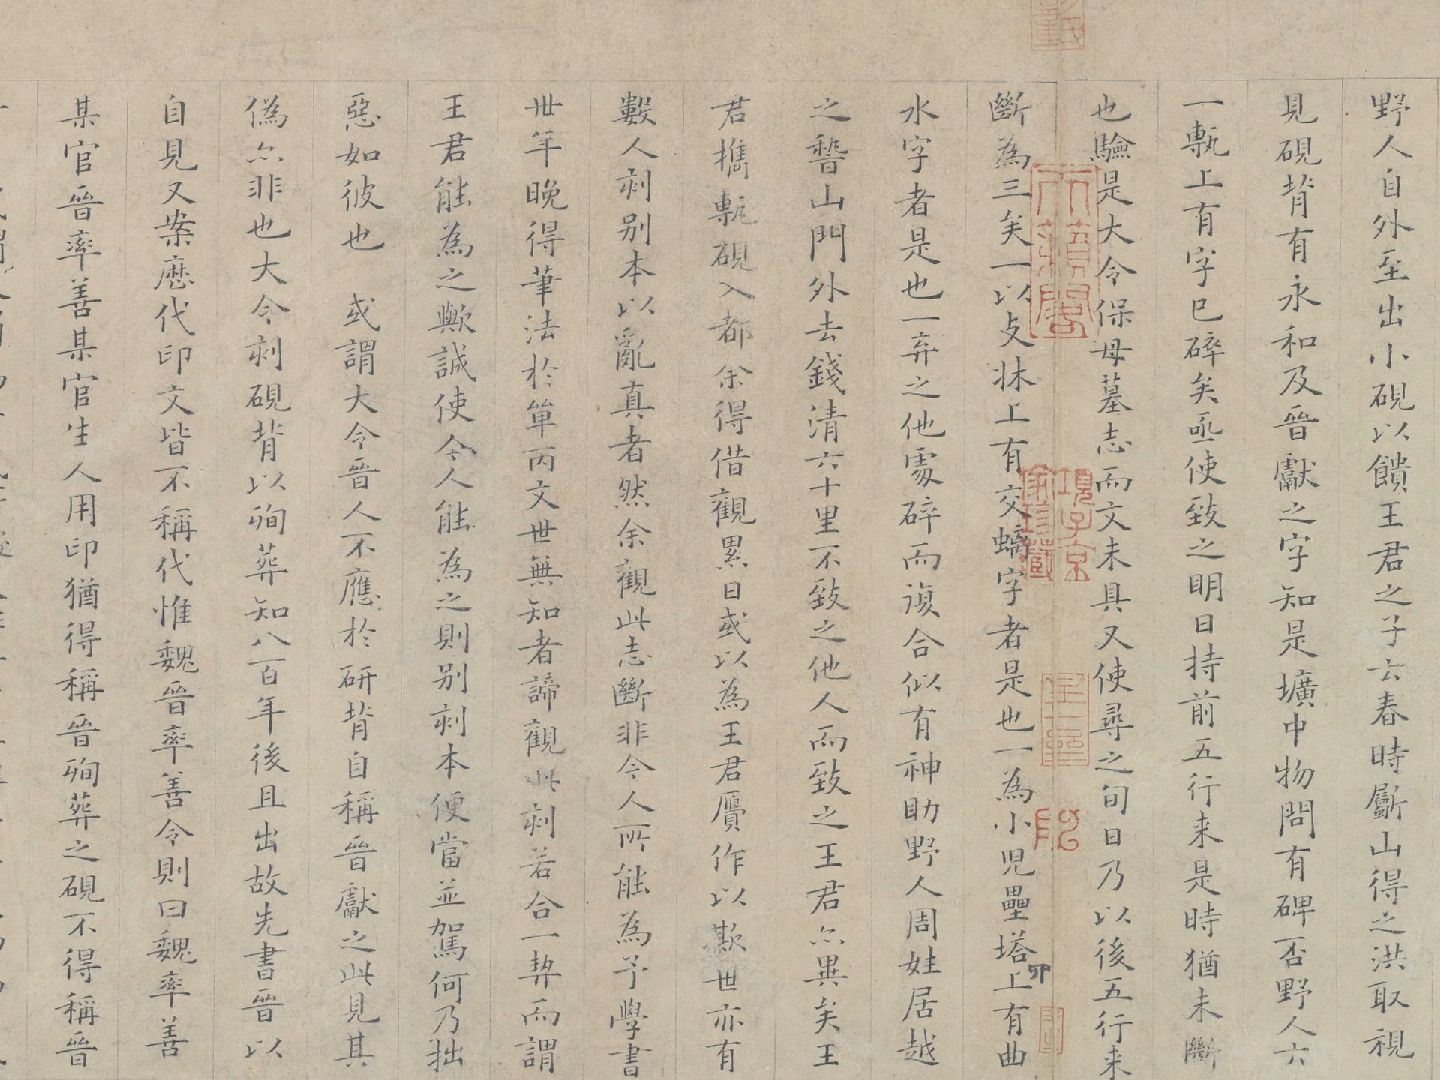 野人自外至出小硯以饋王君之子云春時斸山得之洪取視
見硯背有永和及晉獻之字知是壙中物問有碑否野人云
一甎上有字已碎矣亟使致之明日持前五行来是時猶未斷
也驗是大令保母墓志而文未具又使尋之旬日乃以後五行来
斷為三矣一以支牀上有交螭字者是也一為小児壘塔上有曲
水字者是也一弃之他處碎而復合似有神助野人周姓居越
之稽山門外去錢清六十里不致之他人而致之王君亦異矣王
君攜甎硯入都余得借觀累日或以為王君贋作以欺世亦有
數人刻别本以亂真者然余觀此志斷非今人所能為予學書
丗年晚得筆法於單丙文世無知者諦觀此刻若合一契而謂
王君能為之歟誠使今人能為之則别刻本便當並駕何乃拙
惡如彼也 或謂大令晉人不應於研背自稱晉獻之此見其
偽亦非也大令刻硯背以殉葬知八百年後且出故先書晉以
自見又案歷代印文皆不稱代惟魏晉率善令則曰魏率善
某官晉率善某官生人用印猶得稱晉殉葬之硯不得稱晉
項子京
家珍藏